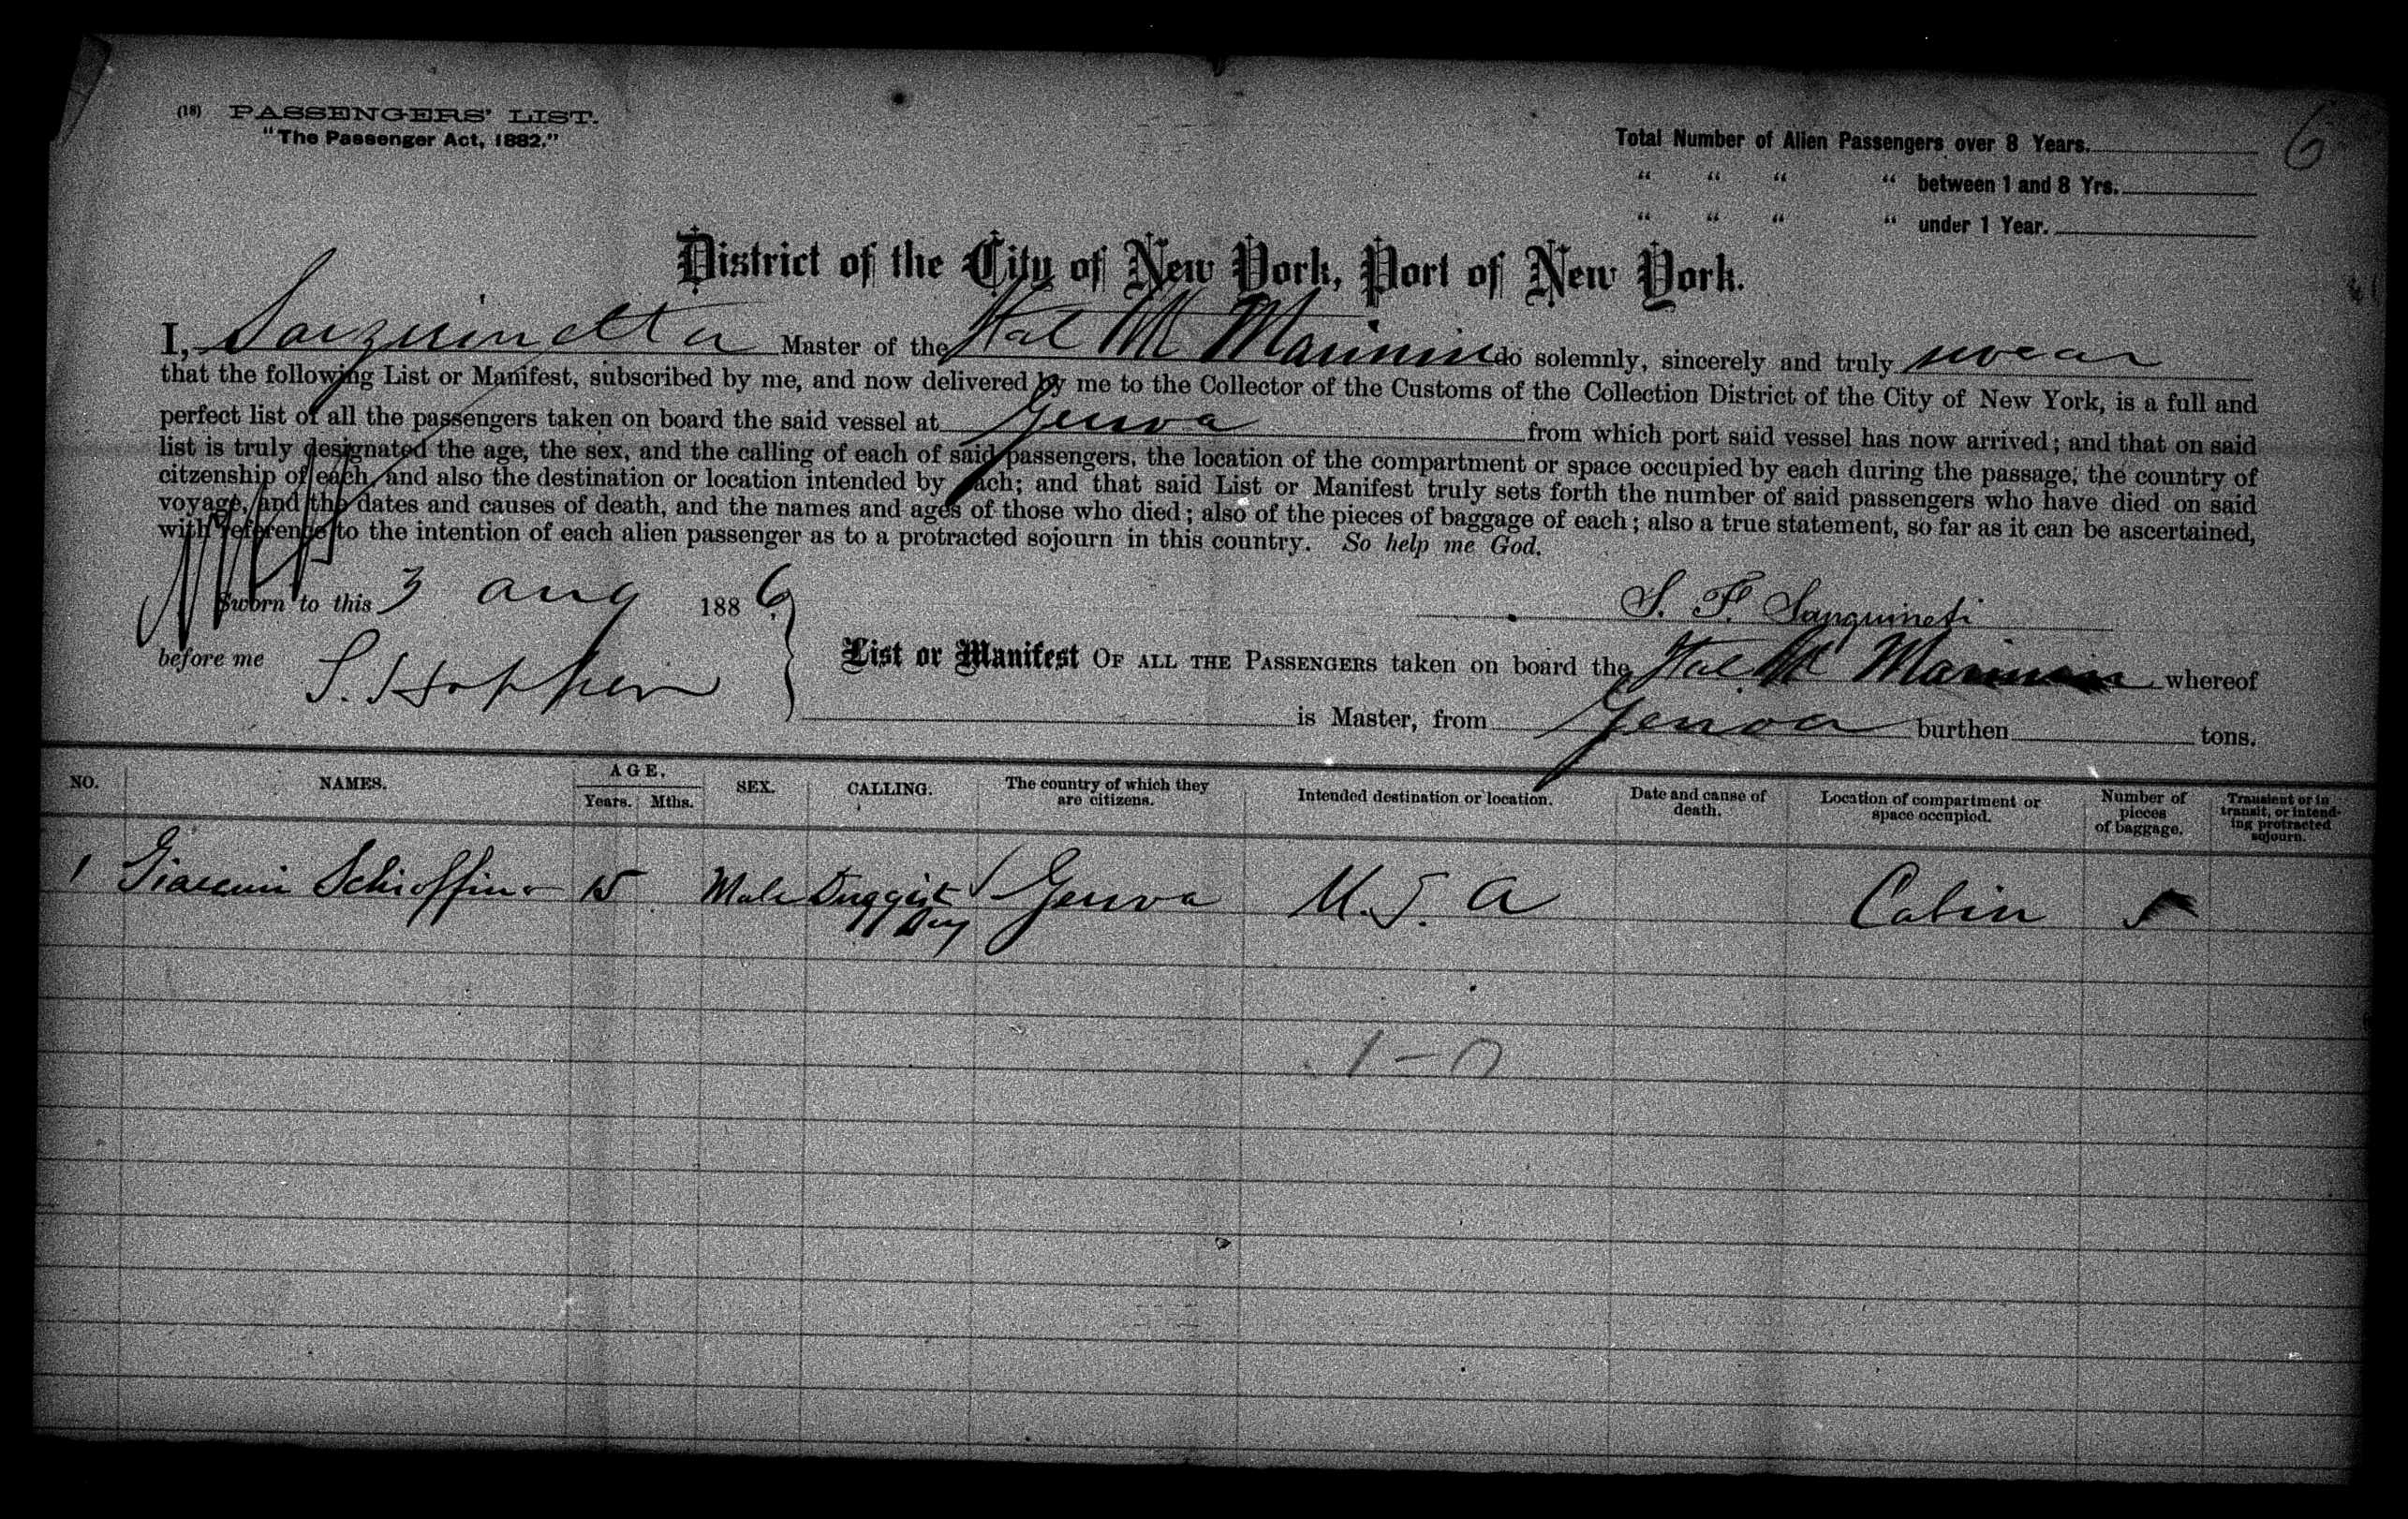 (18) PASSENGERS' LIST.
"The Passenger Act, 1882."
6
Total Number of Alien Passengers over 8 Years.
" " " " between 1 and 8 Yrs.
" " " " under 1 Year.
District of the City of New York, Port of New York.
I, Master of the Ital do solemnly, sincerely and truly swear
that the following List or Manifest, subscribed by me, and now delivered by me to the Collector of the Customs of the Collection District of the City of New York, is a full and
perfect list of all the passengers taken on board the said vessel at Genoa from which port said vessel has now arrived; and that on said
list is truly designated the age, the sex, and the calling of each of said passengers, the location of the compartment or space occupied by each during the passage; the country of
citzenship of each, and also the destination or location intended by each; and that said List or Manifest truly sets forth the number of said passengers who have died on said
voyage, and the dates and causes of death, and the names and ages of those who died; also of the pieces of baggage of each; also a true statement, so far as it can be ascertained,
with reference to the intention of each alien passenger as to a protracted sojourn in this country. So help me God.
Sworn to this 3 Aug 1886
S. F. Sanguineti
before me S. Hopper
List or Manifest OF ALL THE PASSENGERS taken on board the Ital whereof
is Master, from Genoa burthen tons.
NO. NAMES. AGE. Years. Mths. SEX. CALLING. The country of which they are citizens. Intended destination or location. Date and cause of death. Location of compartment or space occupied. Number of pieces of baggage. Transient or in transit, or intending protracted sojourn.
1 Schiaffino 15 Male Genoa U. S. A Cabin
1 - 0